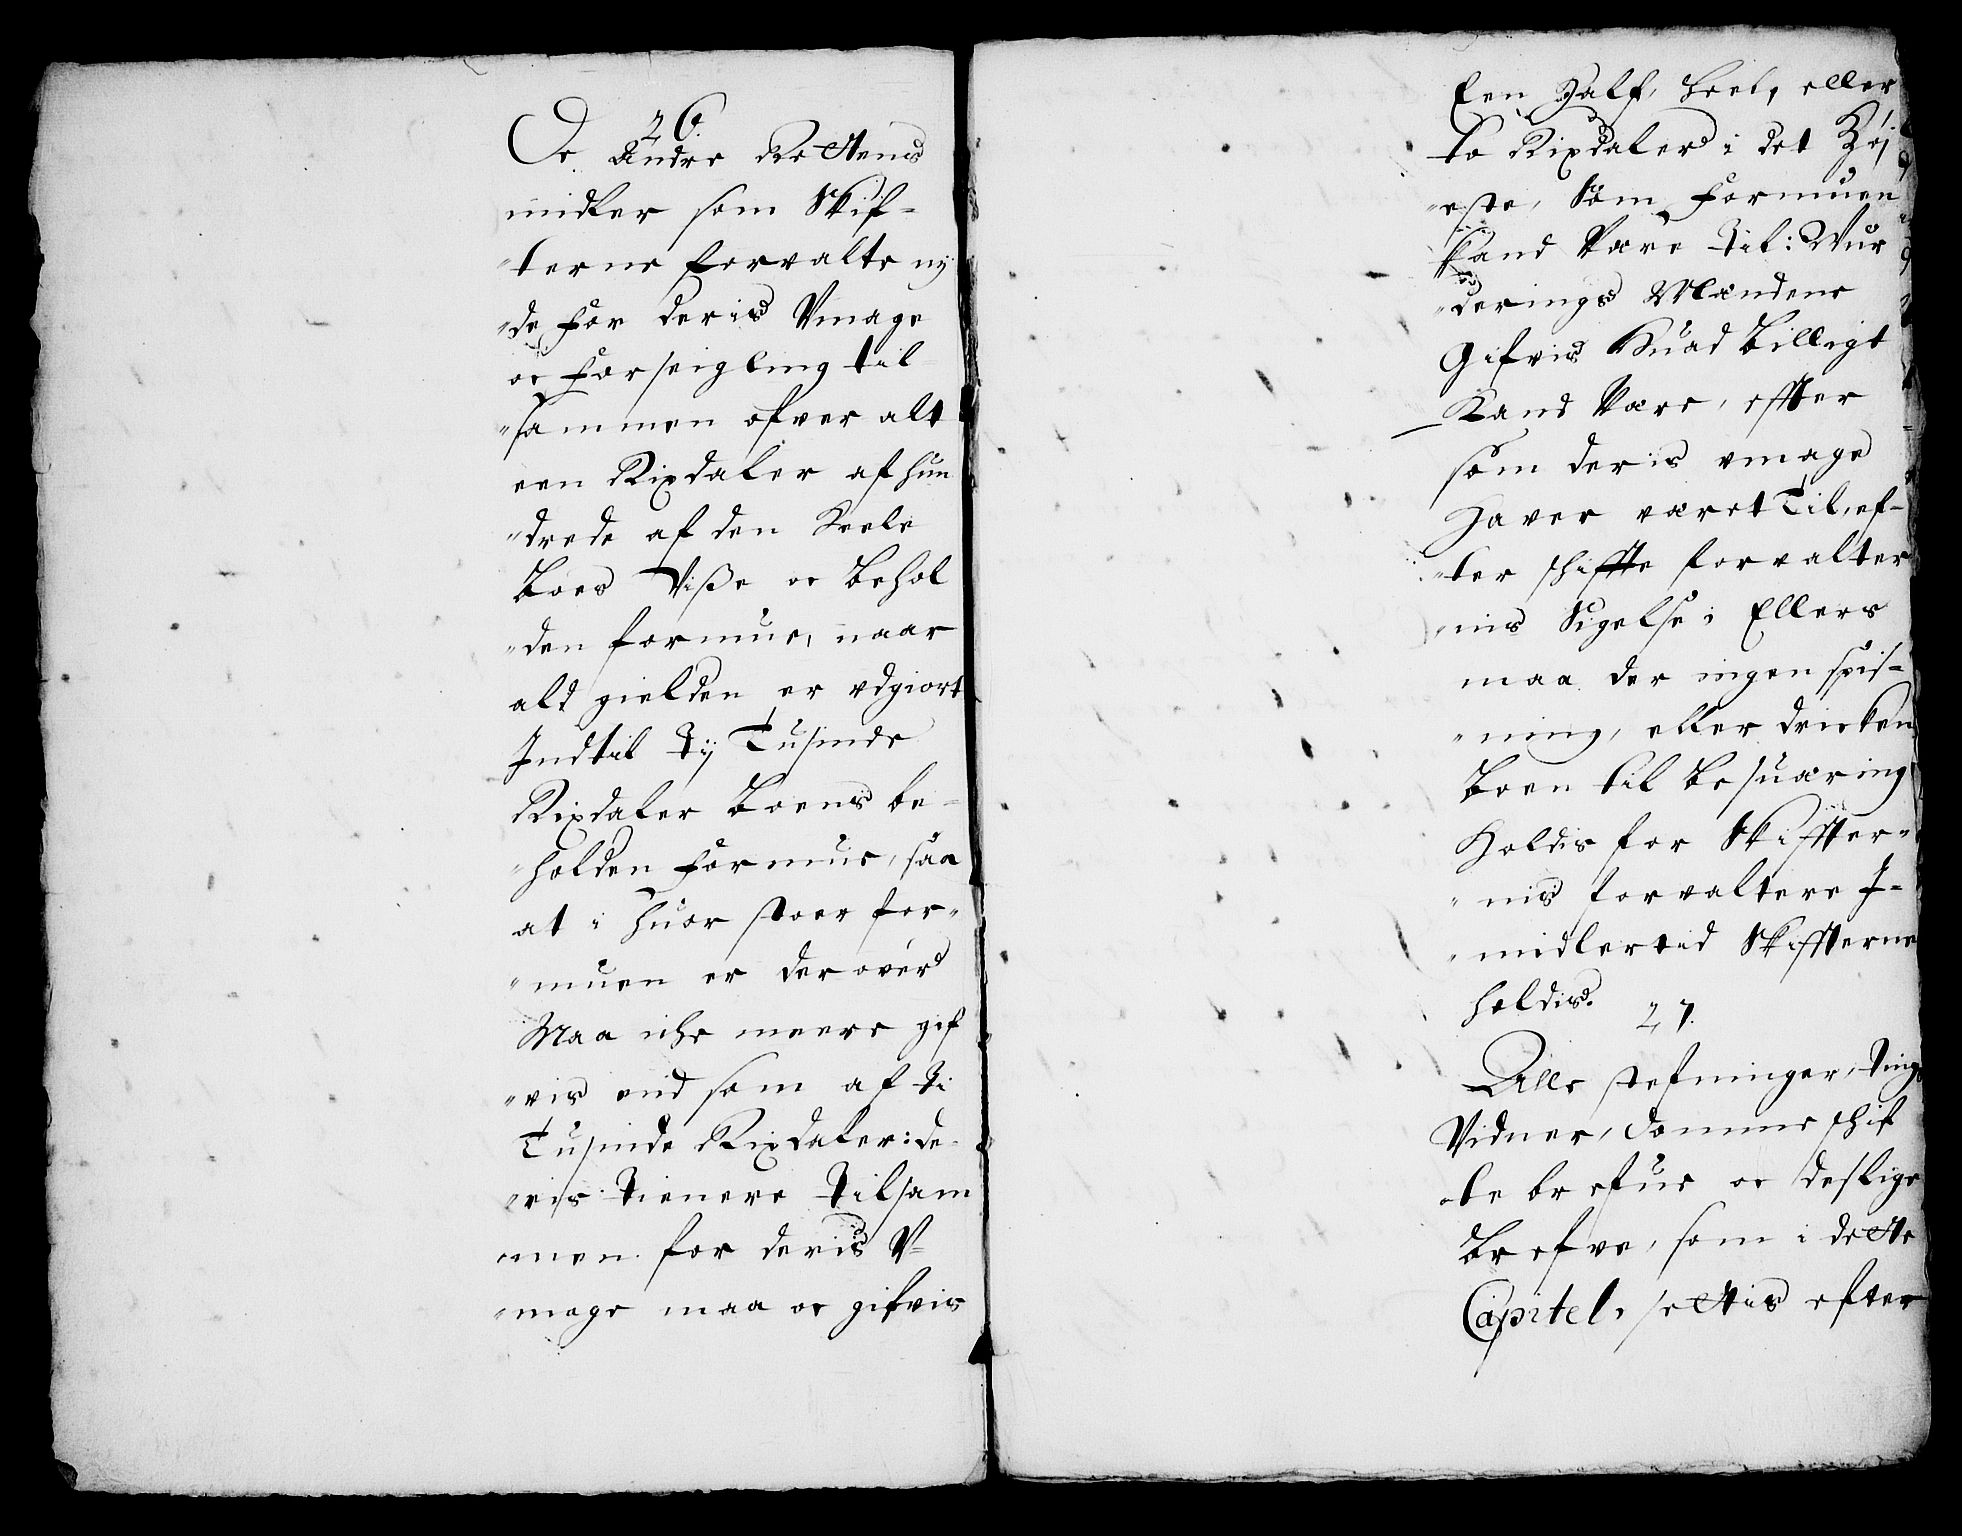 26.
De Andre Rettens
midler som Skif-
"terne forvalte nÿ
"de for deris Vmage
oc forseigling til
"sammen ofver alt
een Rixdaler af hun
"drede af den heele
Boes Viße oc behol
"den formue, naar
ald gielden er vdgiort
Indtil Tÿ Tusinde
Rixdaler Boens be-
"holden formue, saa
at i huor stoer for-
"muen er derover
Maa iche meere gif
"vis end som af Ti
Tusinde Rixdaler: de-
"ris Tienere Tilsam
"men for deris V-
"mage maa oc gifvis
Een Half, heel, eller
to Rixdaler i det Høj
"este, som formuen
kand være til: Vur
"derings Mændene
Gifvis huad billigt
kand være, effter
som deris vmage
Haver været Til, ef-
"ter schiffte forvalter
"nis Sigelse; Ellers
maa der ingen spis-
"ning, eller dricken
boen til besuæring
Holdis for Skiffter-
"nis forvaltere I-
"midlertid Skiffterne
holdis.
27.
Alle stefninger, Tings
Vidner, domme schif
te brefue oc deslige
brefve, som i dette
Capitel, settis efter